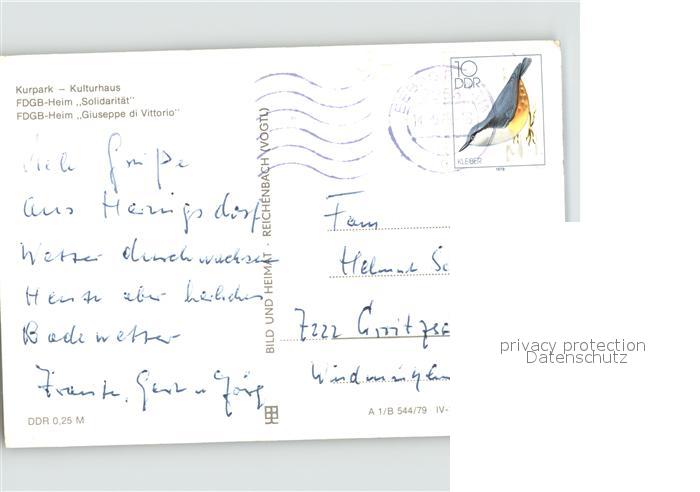 Kurpark – Kulturhaus
FDGB-Heim „Solidarität"
FDGB-Heim „Giuseppe di Vittorio"
Viele Grüße
aus Heringsdorf
Wetter durchwachsen
Heute aber herrliches
Badewetter
Gert u Jörg
DDR 0,25 M
BILD UND HEIMAT · REICHENBACH (VOGTL)
10
DDR
KLEBER
1979
Fam
Helmut Sc
7222
A 1/B 544/79 IV-
privacy protection
Datenschutz